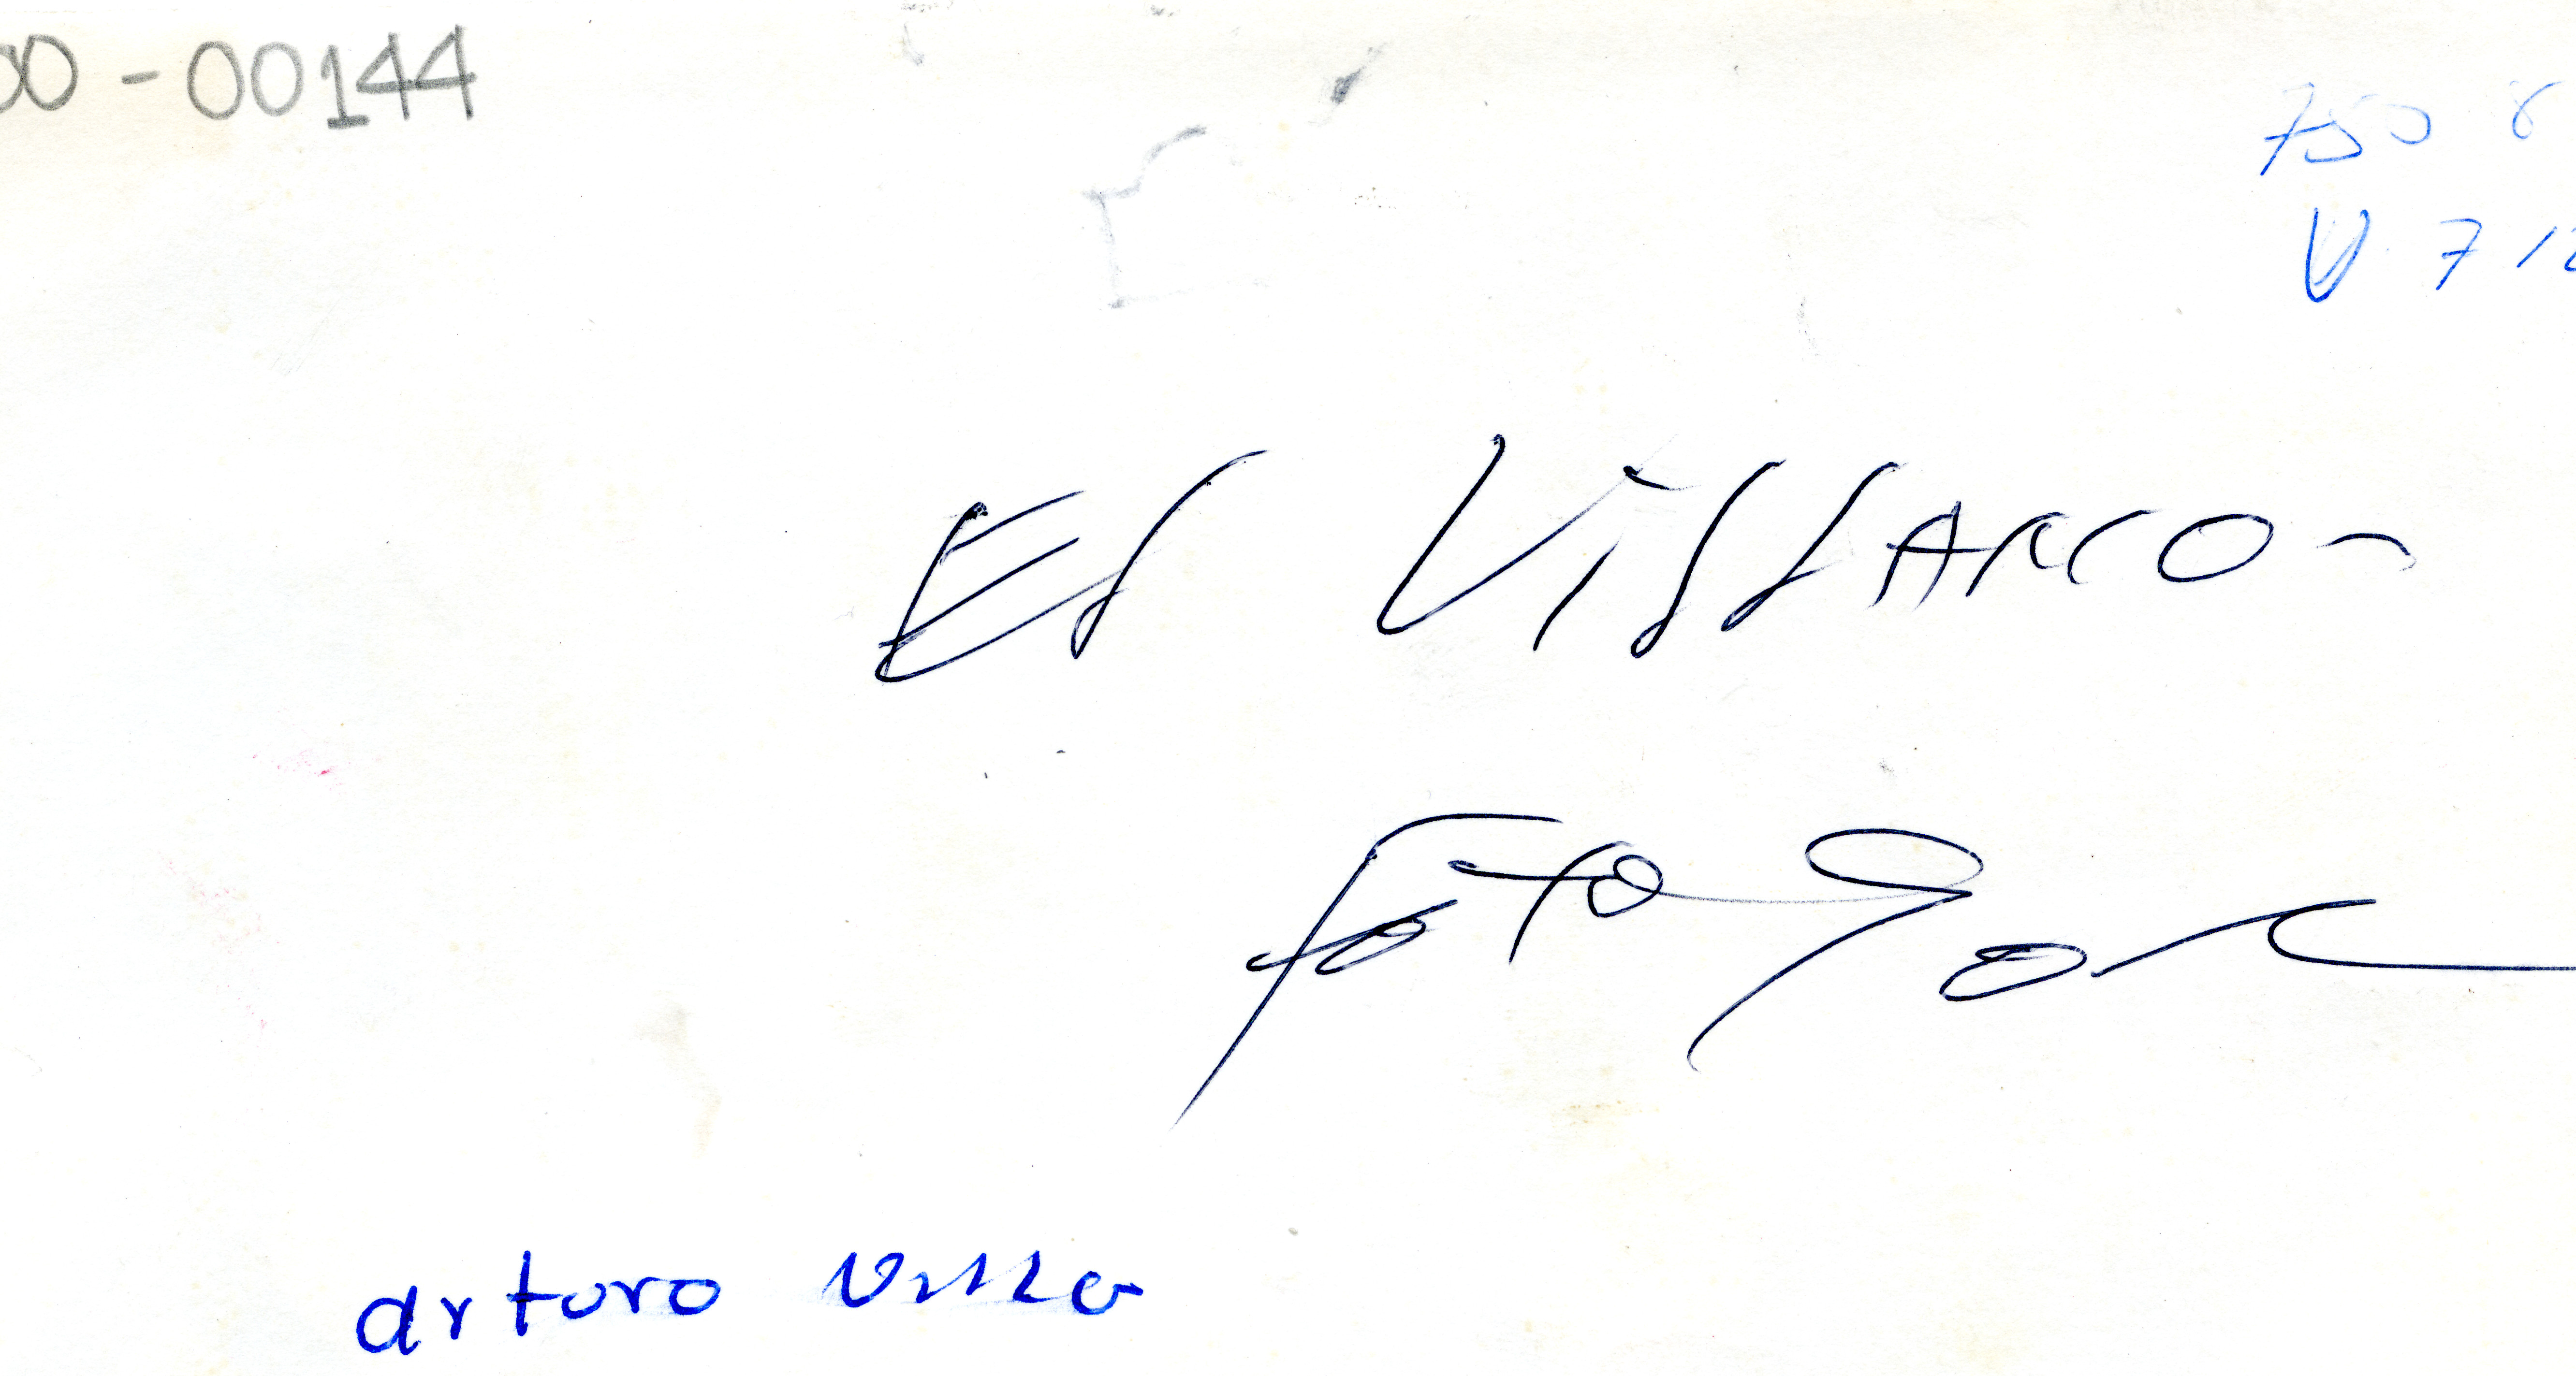 00-00144
750 8
V 712
El Villarco-
foto
arturo Villa